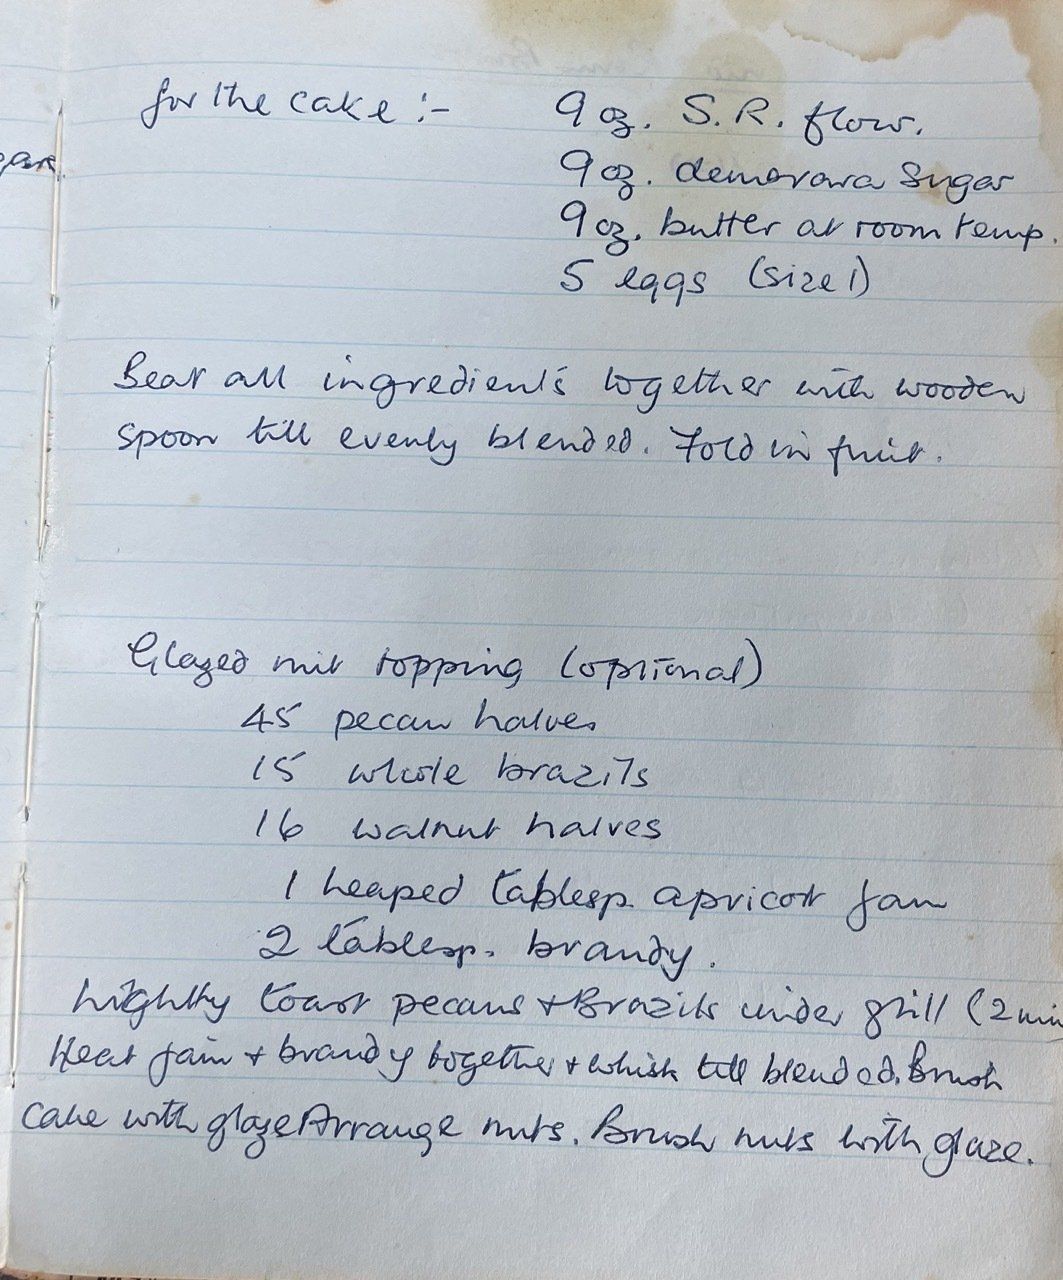 for the cake :- 9 oz. S.R. flour.
9 oz. demerara Sugar
9 oz. butter at room temp.
5 eggs (size 1)
Beat all ingredients together with wooden
spoon till evenly blended. Fold in fruit.
Glazed nut topping (optional)
45 pecan halves
15 whole brazils
16 walnut halves
1 heaped tablesp. apricot jam
2 tablesp. brandy.
Lightly toast pecans + Brazils under grill (2 min
Heat jam + brandy together + whisk till blended. Brush
cake with glaze Arrange nuts. Brush nuts with glaze.